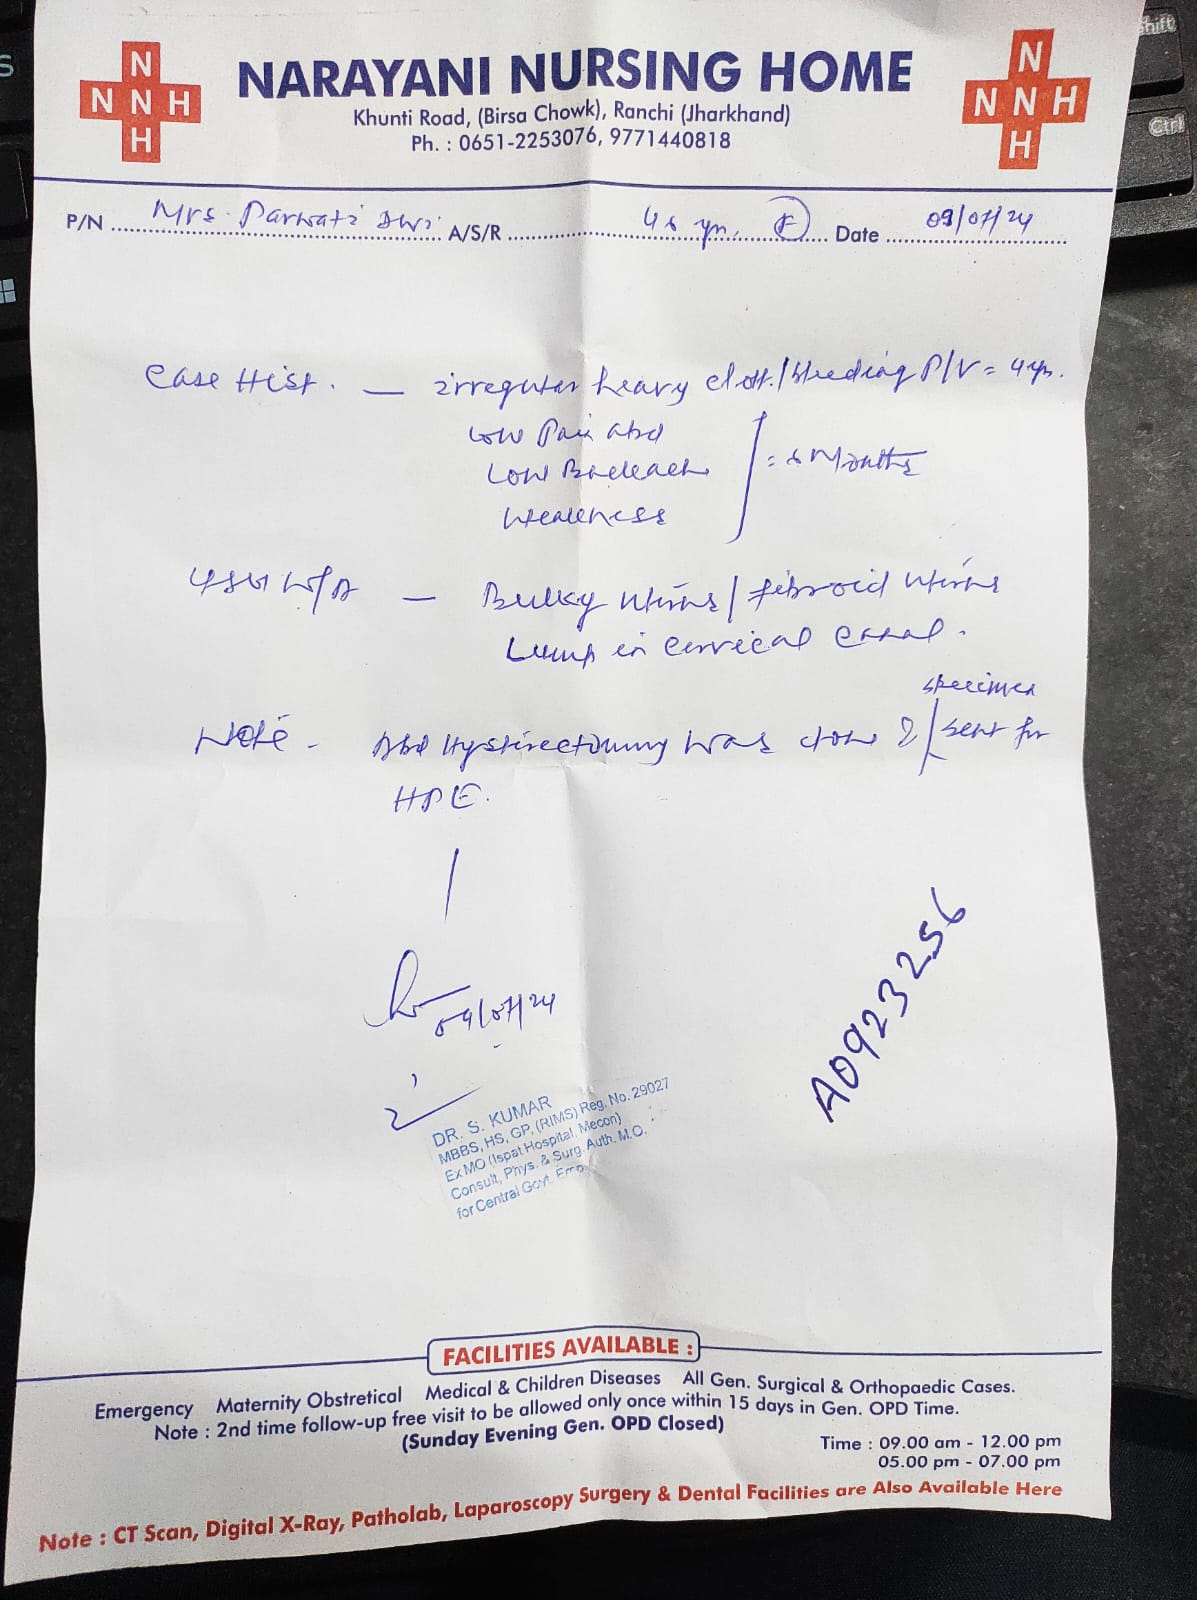 N
N N H
H
NARAYANI NURSING HOME
Khunti Road, (Birsa Chowk), Ranchi (Jharkhand)
Ph. : 0651-2253076, 9771440818
N
N N H
H
P/N Mrs. Parwati Dwi A/S/R yrs. F Date 09/07/24
Case Hist. — irregular heavy clott./bleeding P/V = 4 yrs.
Low Pain abd
Low Backach
Weakness
= 6 Months
USG W/A — Bulky uterus / fibroid uterus
Lump in cervical canal.
Note - Abd Hysterectomy was done & / specimen sent for
HPE.
09/07/24
A0923256
DR. S. KUMAR
MBBS, HS, GP, (RIMS) Reg. No. 29027
Ex MO (Ispat Hospital, Mecon)
Consult, Phys. & Surg. Auth. M.O.
for Central Govt. Emp
FACILITIES AVAILABLE :
Emergency Maternity Obstretical Medical & Children Diseases All Gen. Surgical & Orthopaedic Cases.
Note : 2nd time follow-up free visit to be allowed only once within 15 days in Gen. OPD Time.
(Sunday Evening Gen. OPD Closed)
Time : 09.00 am - 12.00 pm
05.00 pm - 07.00 pm
Note : CT Scan, Digital X-Ray, Patholab, Laparoscopy Surgery & Dental Facilities are Also Available Here
Shift
Ctrl